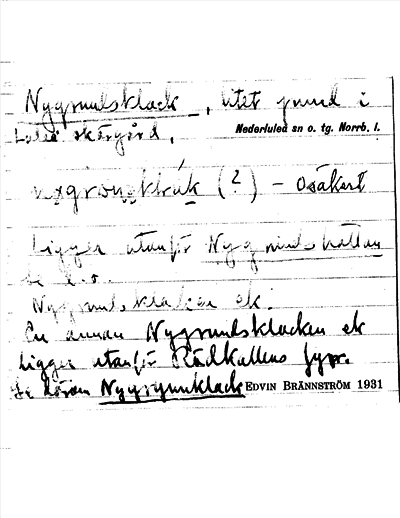 Nygrundsklack, litet grund i
Luleå skärgård.
Nederluleå sn o. tg. Norrb. l.
(?) – Osäkert
Ligger utanför
se d. o.
Nygrundsklacken ek.
En annan Nygrundsklacken ek
ligger utanför Rödkallens fyr.
Se
EDVIN BRÄNNSTRÖM 1931